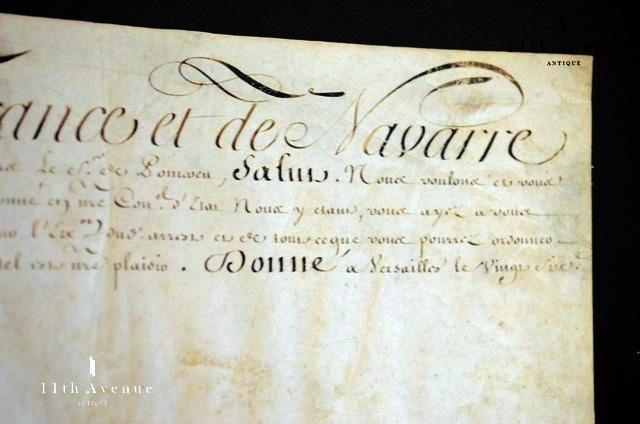 11th Avenue
ANTIQUE
ance et de Navarre
Le s.r de Pomereu, Salut. Nous voulons et vous
en n're Con.el d'Etat Nous y etant, vous ayez a vous
l'Ex.on dud. arrest et de tout ce que vous pourrez ordonner
el est n're plaisir. Donné à Versailles le Vingt Six.e
11th Avenue
ANTIQUE